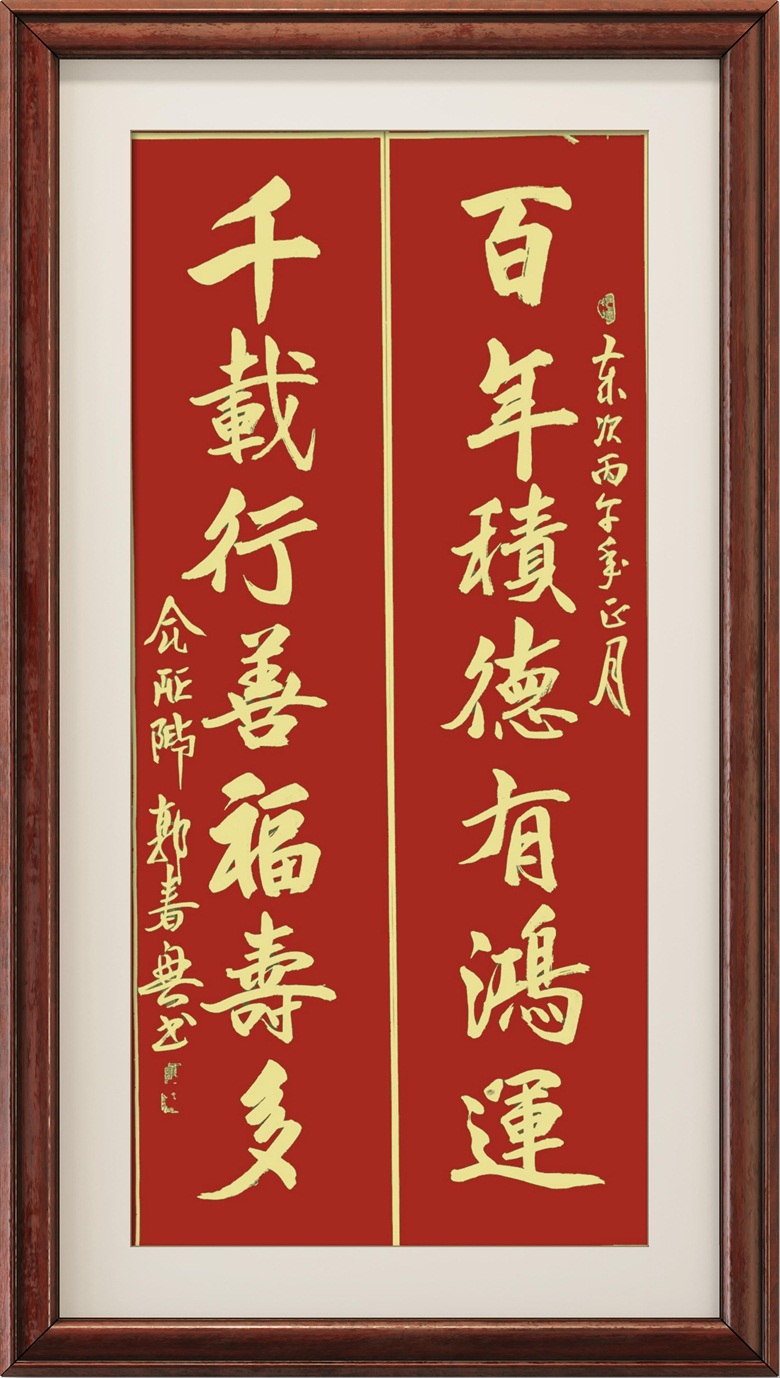 百年積德有鴻運
次丙午年正月
千載行善福壽多
郭春興书